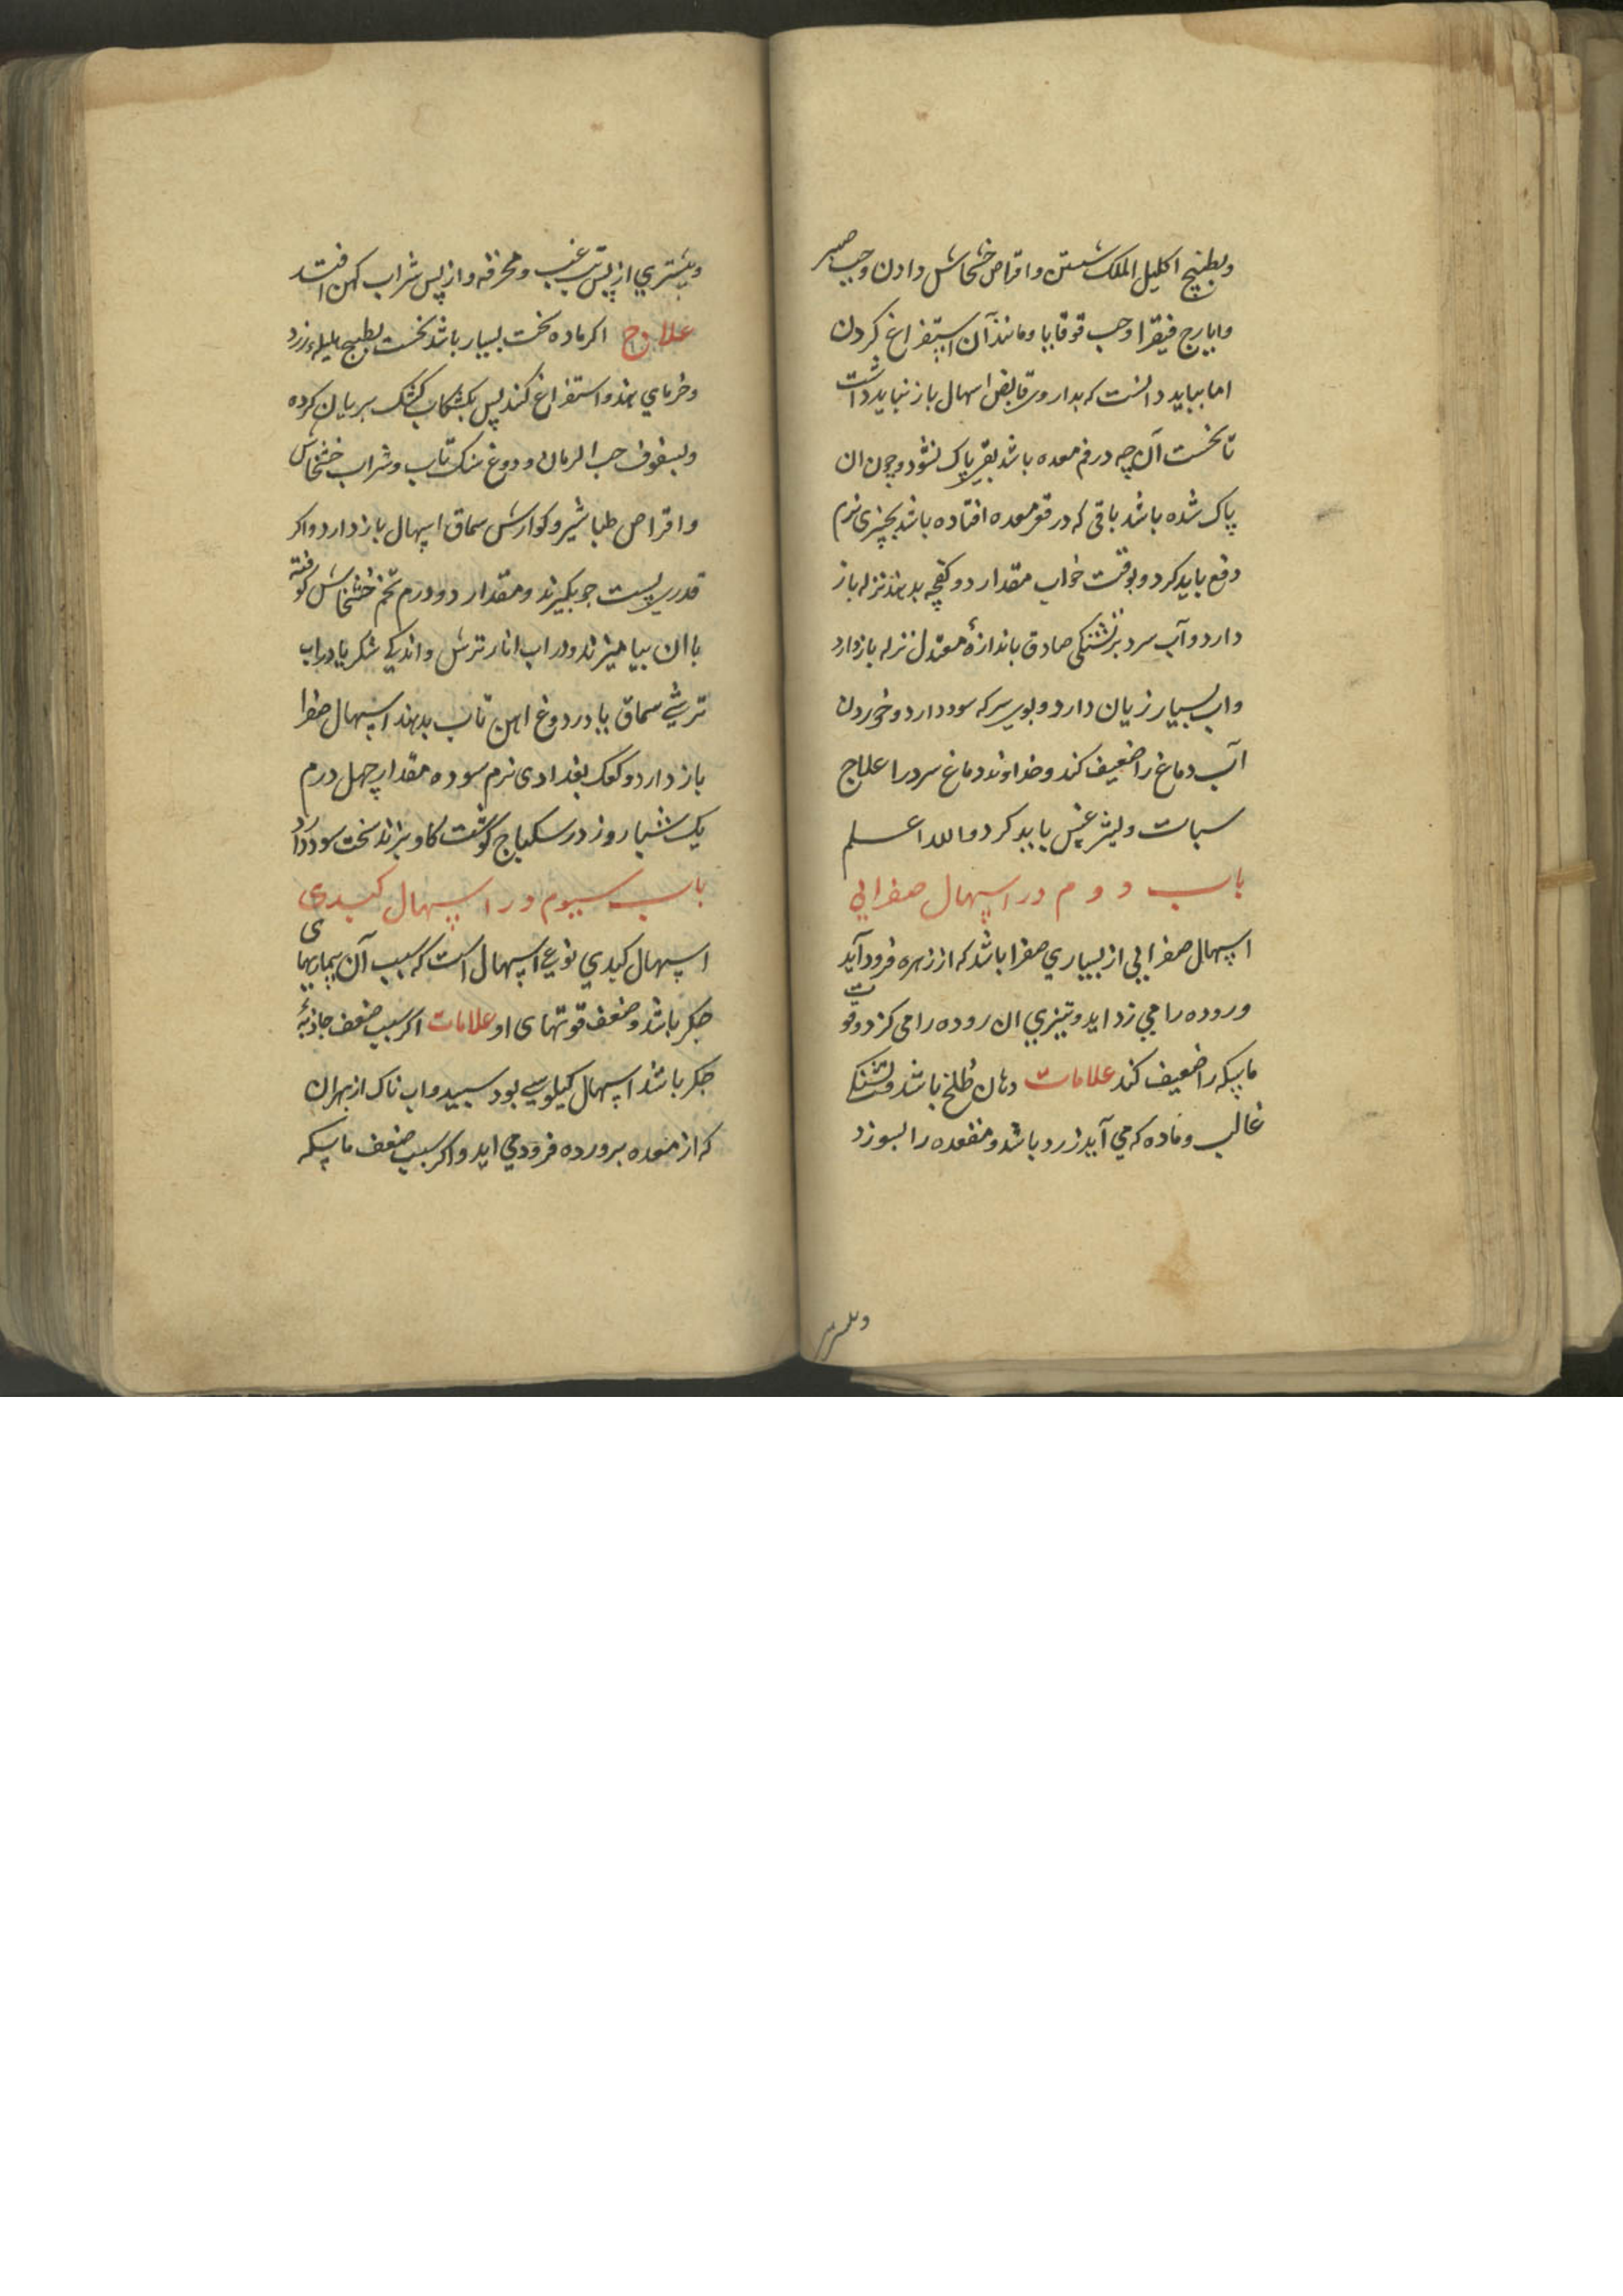 وبطبیخ اکلیل الملک شستن واقراص خشخاش دادن وحب صبر
وایارج فیقرا وحب قوقایا ومانند آن استفراغ کردن
اما بباید دانست که بداروی قابض اسهال باز نباید داشت
تا نخست آن چه در فم معده باشد بقی پاک نشود وچون ان
پاک شده باشد باقی که در قعر معده افتاده باشد بچیزی نرم
دفع باید کرد وبوقت خواب مقدار دو کفچه بدهند نزله باز
دارد وآب سرد بر تشنکی صادق باندازهٔ معتدل نزله باز دارد
واب بسیار زیان دارد وبوی سرکه سود دارد وخوردن
آب دماغ را ضعیف کند وخداوند دماغ سرد را علاج
سبات ولیثرغس باید کرد والله اعلم
باب دوم در اسهال صفرایی
اسهال صفرایی از بسیاری صفرا باشد که از زهره فرود آید
وروده را می زداید وتیزی ان روده را می کزد وقوت
ماسکه را ضعیف کند علامات دهان طلخ باشد وتشنکی
غالب وماده که می آید زرد باشد ومقعده را بسوزد
وبیشتری از پس تب غب ومحرقه واز پس شراب کهن افتد
علاج اکر ماده سخت بسیار باشد نخست بطبیخ هلیلهء زرد
وخرمای هندو استفراغ کنند پس بکشکاب کشک بریان کرده
وبسفوف حب الرمان ودوغ سنک تاب وشراب خشخاش
واقراص طباشیر وکوارش سماق اسهال باز دارد واکر
قدری پست جو بکیرند ومقدار دو درم تخم خشخاش کوفته
با ان بیامیزند ودر اب انار ترش واندکی شکر یا در اب
ترشی سماق یا در دوغ اهن تاب بدهند اسهال صفرا
باز دارد وکعک بغدادی نرم سوده مقدار چهل درم
یک شبار روز در سکباج کوشت کاو بنزند سخت سود دارد
باب سیوم در اسهال کبدی
اسهال کبدی نوعی اسهال است که سبب آن بیماریهای
جکر باشد وضعف قوتهای او علامات اکر سبب ضعف جاذبهٔ
جکر باشد اسهال کیلوسی بود سپید واب ناک از بهر ان
که از معده بروده فرود می اید واکر سبب ضعف ماسکه